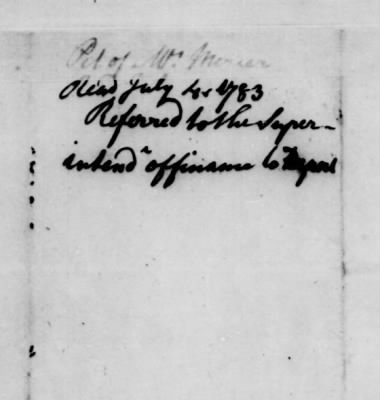 Pet of Mr. Mercier
Read July 4. 1783
Referred to the Super-
intendt of finance to report